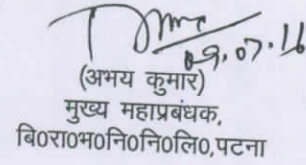 09.07.16
(अभय कुमार)
मुख्य महाप्रबंधक,
बि0रा0भ0नि0नि0लि0,पटना